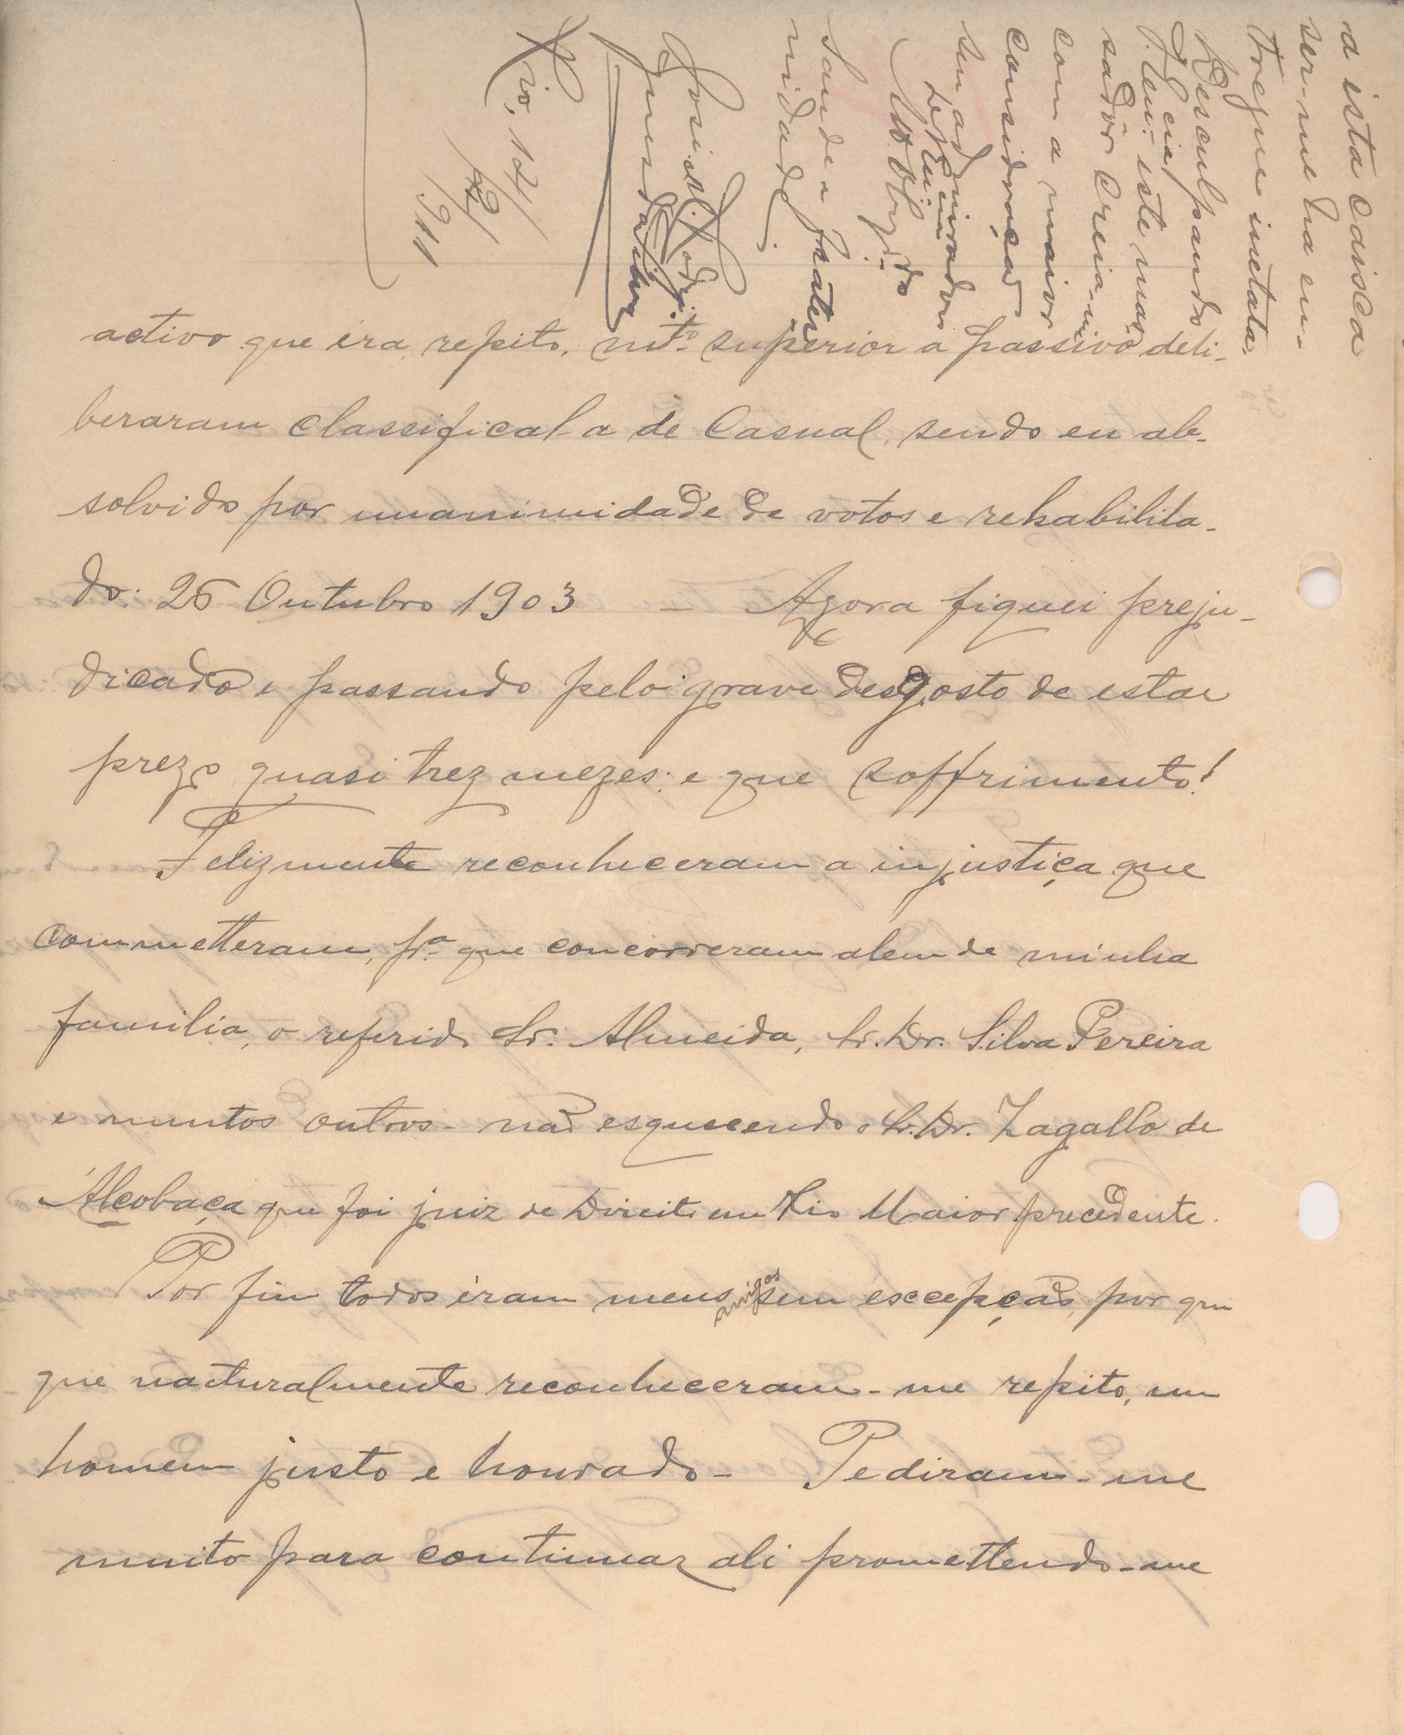 a esta causa
ser-me ha en-
tregue intacta.
Desculpando
V. Ex.cia
este mas-
sadôr Creia-m
com a maior
consideração
seu admirador
Mt.º Obrg.do
Saude e frater
nidade.
José M. Rodrig.
Rio, 12/
1911
activo que éra, repito, mt.º superior a passivo deli-
beraram classifical-a de Casual, sendo eu ab-
solvido por unanimidade de votos e rehabilita-
do: 26 Outubro 1903 — Agora fiquei preju-
dicado e passando pelo grave desgosto de estar
prezo quasi trez mezes: e que soffrimento!
Felizmente reconheceram a injustiça que
commetteram, p.ª que concorreram alem de minha
familia, o referido Sr. Almeida, Sr. Dr. Silva Pereira
e muntos outros - não esquecendo o Sr. Dr. Zagallo de
Alcobaça que foi juiz de Direito em Rio Maior precedente.
Por fim todos éram meus amigos sem escepção, por que
que nacturalmente reconheceram-me repito, um
homem justo e honrado - Pediram-me
muito para continuar ali promettendo-me